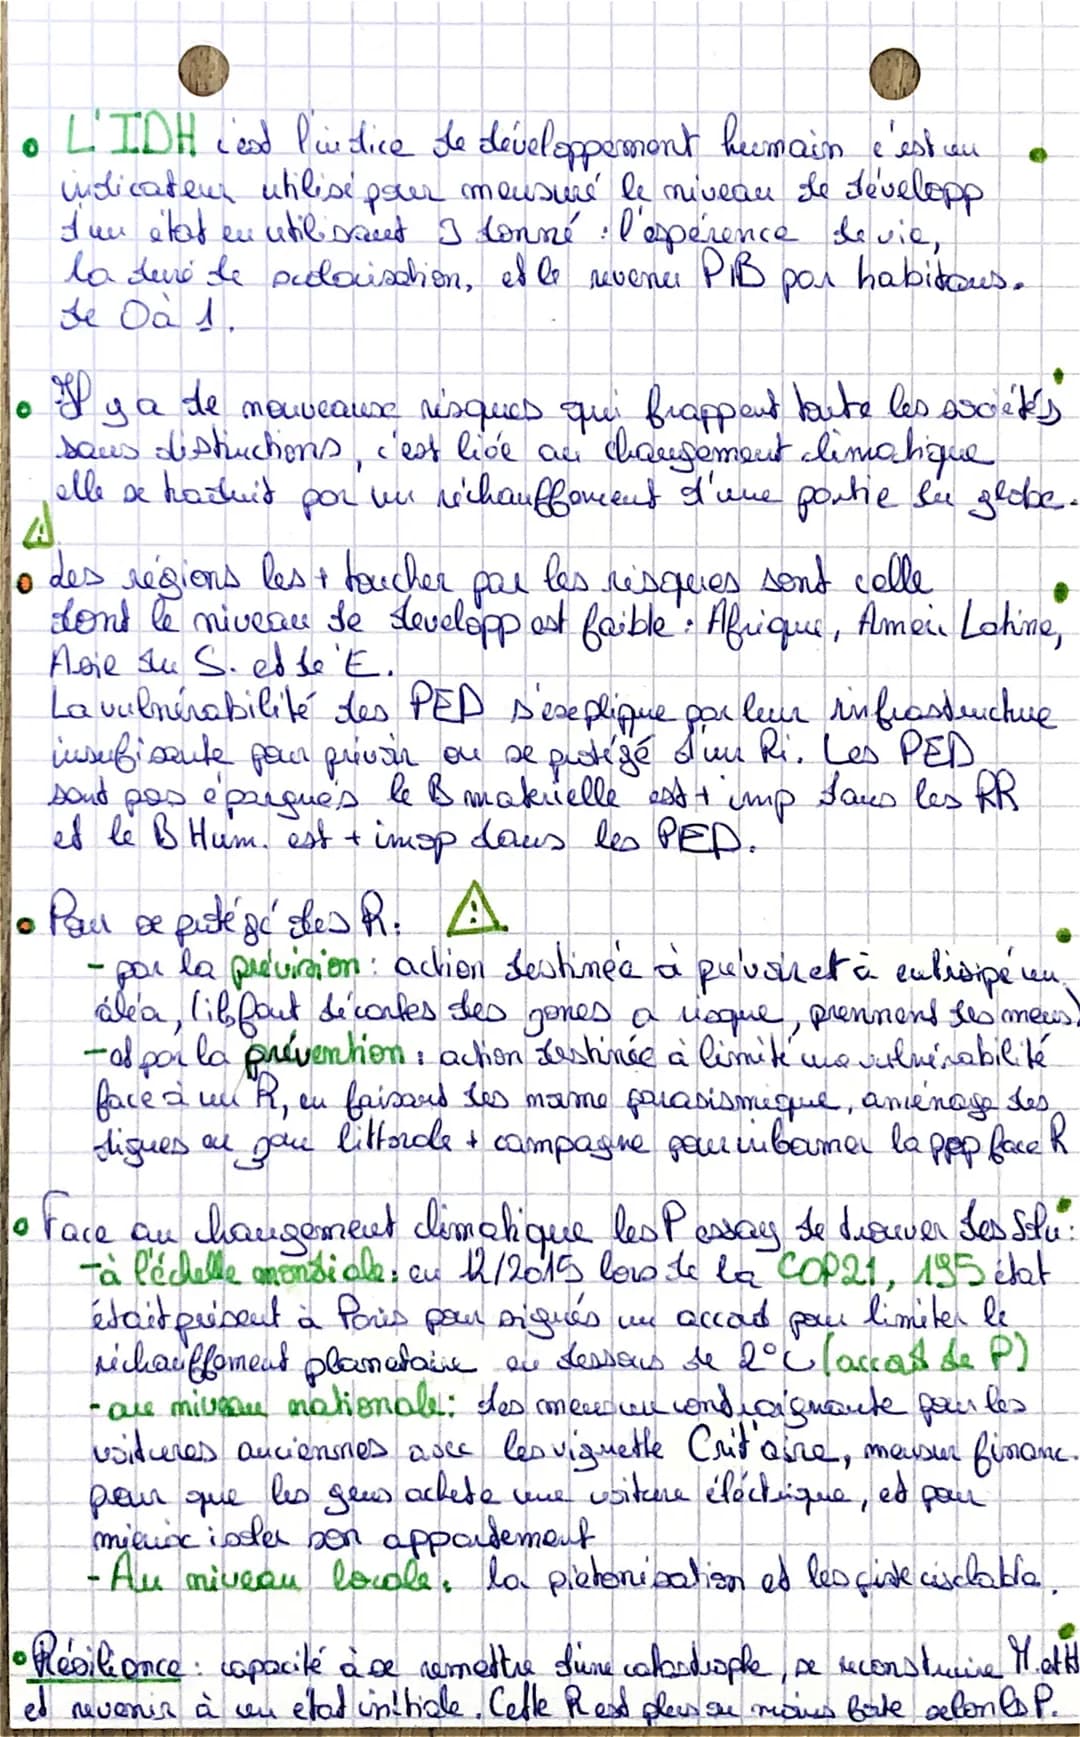 L'IDH c'est l'indice de développement humain c'est un
indicateur utilisé pour mensuré le niveau de développ
d'un état en utilisant 3 donné : l'espérence de vie,
la duré de scolarisation, et le revenu PIB par habitans.
de 0 à 1.
Il y a de nouveaux risques qui frappent toute les sociétés
sans distinctions, c'est liée au changement climatique
elle se traduit par un réchauffement d'une partie du globe.
des régions les + toucher par les risques sont celle
dont le niveau de developp est faible : Afrique, Ameri Latine,
Asie du S. et de l'E.
La vulnérabilité des PED s'explique par leur infrastructure
insufisante pour prévoir ou se protégé d'un Ri. Les PED
sont pas épargnés le B materielle est + imp dans les RR
et le B Hum. est + imp dans les PED.
Pour se protégé des R:
- par la prévision : action destinée à prévoir et à entisipé un
aléa, (il faut des cartes des zones a risque, prennent des mesus)
- et par la prévention : action destinée à limité une vulnérabilité
face à un R, en faisant des norme parasismique, aménage des
digues au littorale + campagne pour informer la pop face R
Face au changement climatique les P essay de trouver des Solu :
- à l'échelle mondiale : en 12/2015 lors de la COP21, 195 état
était présent à Paris pour signés un accord pour limiter le
réchauffement planétaire au dessous de 2°C (accord de P)
- au niveau nationale : des mesure contraignante pour les
voitures anciennes avec les vignette Crit'aire, mesur financ.
pour que les gens achete une voiture éléctrique, et pour
mieux isoler son appartement
- Au niveau locale : la piétonisation et les piste cisclable.
Résilience : capacité à se remettre d'une catastrophe, se reconstruire M. et H
et revenir à un état initiale. Cette R est plus ou moins forte selon les P.